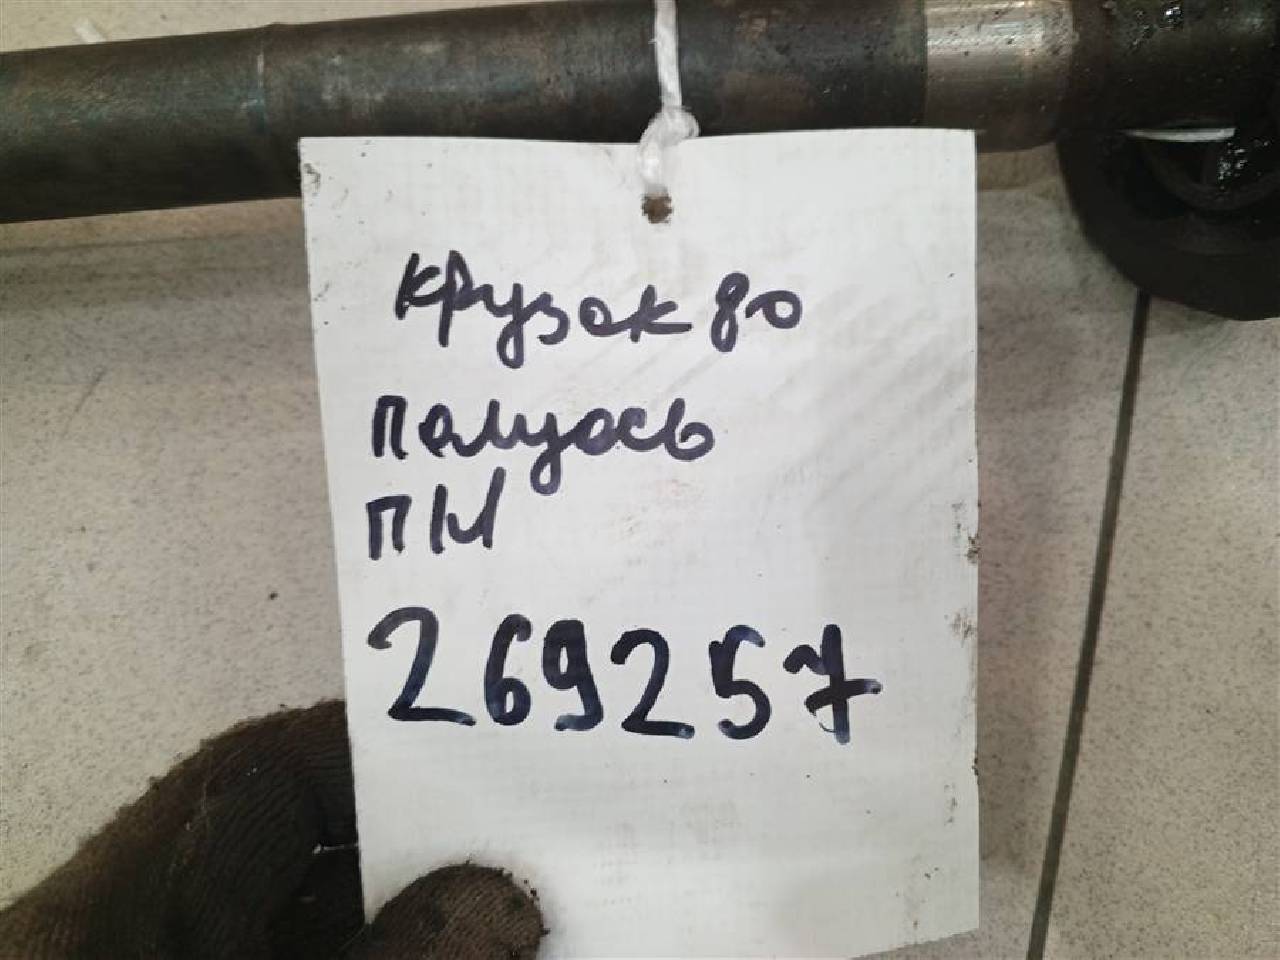 Крузак 80
полуось
ПЛ
269257